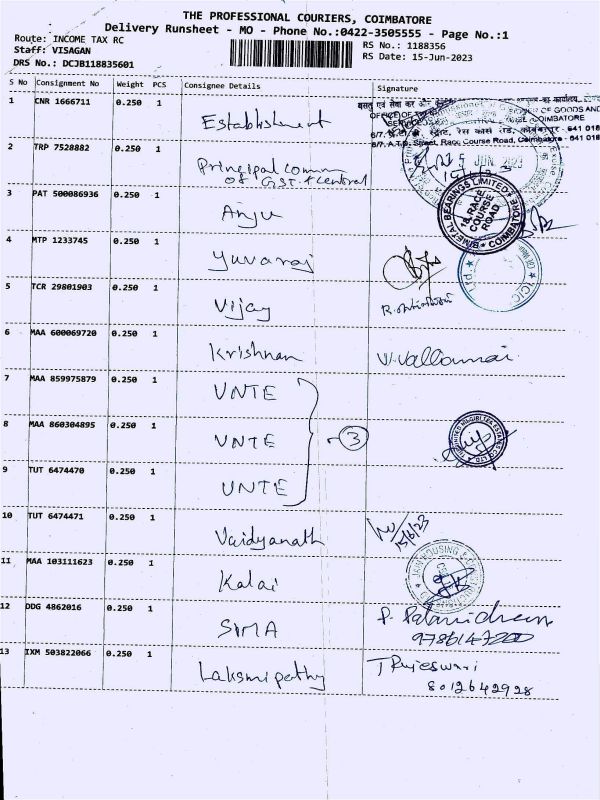 THE PROFESSIONAL COURIERS, COIMBATORE
Delivery Runsheet - MO - Phone No.:0422-3505555 - Page No.:1
Route: INCOME TAX RC
Staff: VISAGAN
DRS No.: DCJB118835601
RS No.: 1188356
RS Date: 15-Jun-2023
S No Consignment No Weight PCS Consignee Details Signature
1 CNR 1666711 0.250 1 Establishment
2 TRP 7528882 0.250 1 Principal comm
of GST & central
6/7, A.T.D. Street, Race Course Road, Coimbatore - 641 018
JUN 2023
3 PAT 500086936 0.250 1 Anju
BIMETAL BEARINGS LIMITED
18, RACE COURSE ROAD
COIMBATORE
4 MTP 1233745 0.250 1 Yuvaraj
5 TCR 29801903 0.250 1 Vijay
6 MAA 600069720 0.250 1 Krishnan V. Valliamai
7 MAA 859975879 0.250 1 UNTE
8 MAA 860304895 0.250 1 UNTE
3
9 TUT 6474470 0.250 1 UNTE
10 TUT 6474471 0.250 1 Vaidyanath 15/6/23
11 MAA 103111623 0.250 1 Kalai
JAIN HOUSING
12 DDG 4862016 0.250 1 SIMA
13 IXM 503822066 0.250 1 Laksmipathy T Rajeswari
8012642928